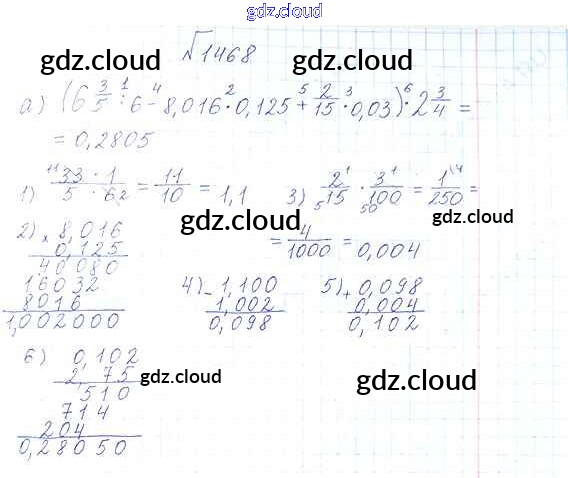 gdz.cloud
√1468
gdz.cloud gdz.cloud
а) (6 3/5 : 6 - 8,016 · 0,125 + 2/15 · 0,03) · 2 3/4 =
1 4 2 5 3 6
= 0,2805
gdz.cloud
1) 33 · 1 / 5 · 6 = 11/10 = 1,1 3) 2/15 · 3/100 = 1/250 =
= 4/1000 = 0,004
gdz.cloud gdz.cloud
2) × 8,016
0,125
40080
16032
8016
1,002000
4) - 1,100
1,002
0,098
5) + 0,098
0,004
0,102
gdz.cloud gdz.cloud
6) 0,102
2,75
510
714
204
0,28050
gdz.cloud gdz.cloud